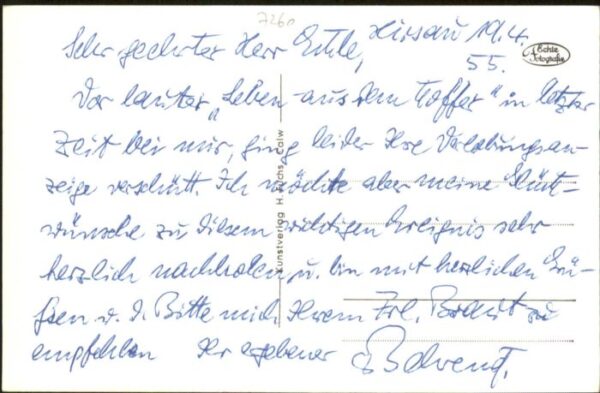 7260
Hirsau 19.4.
55.
Echte Fotografie
Sehr geehrter Herr
Vor lauter „Leben aus dem Koffer" in letzter
Zeit bei mir, ging leider Ihre Verlobungsan-
zeige verschütt. Ich möchte aber meine Glück-
wünsche zu diesem wichtigen Ereignis sehr
herzlich nachholen u. bin mit herzlichen Grü-
ßen u. d. Bitte mich Ihrem Frl. Braut zu
empfehlen Ihr ergebener
Kunstverlag H. Fuchs, Calw